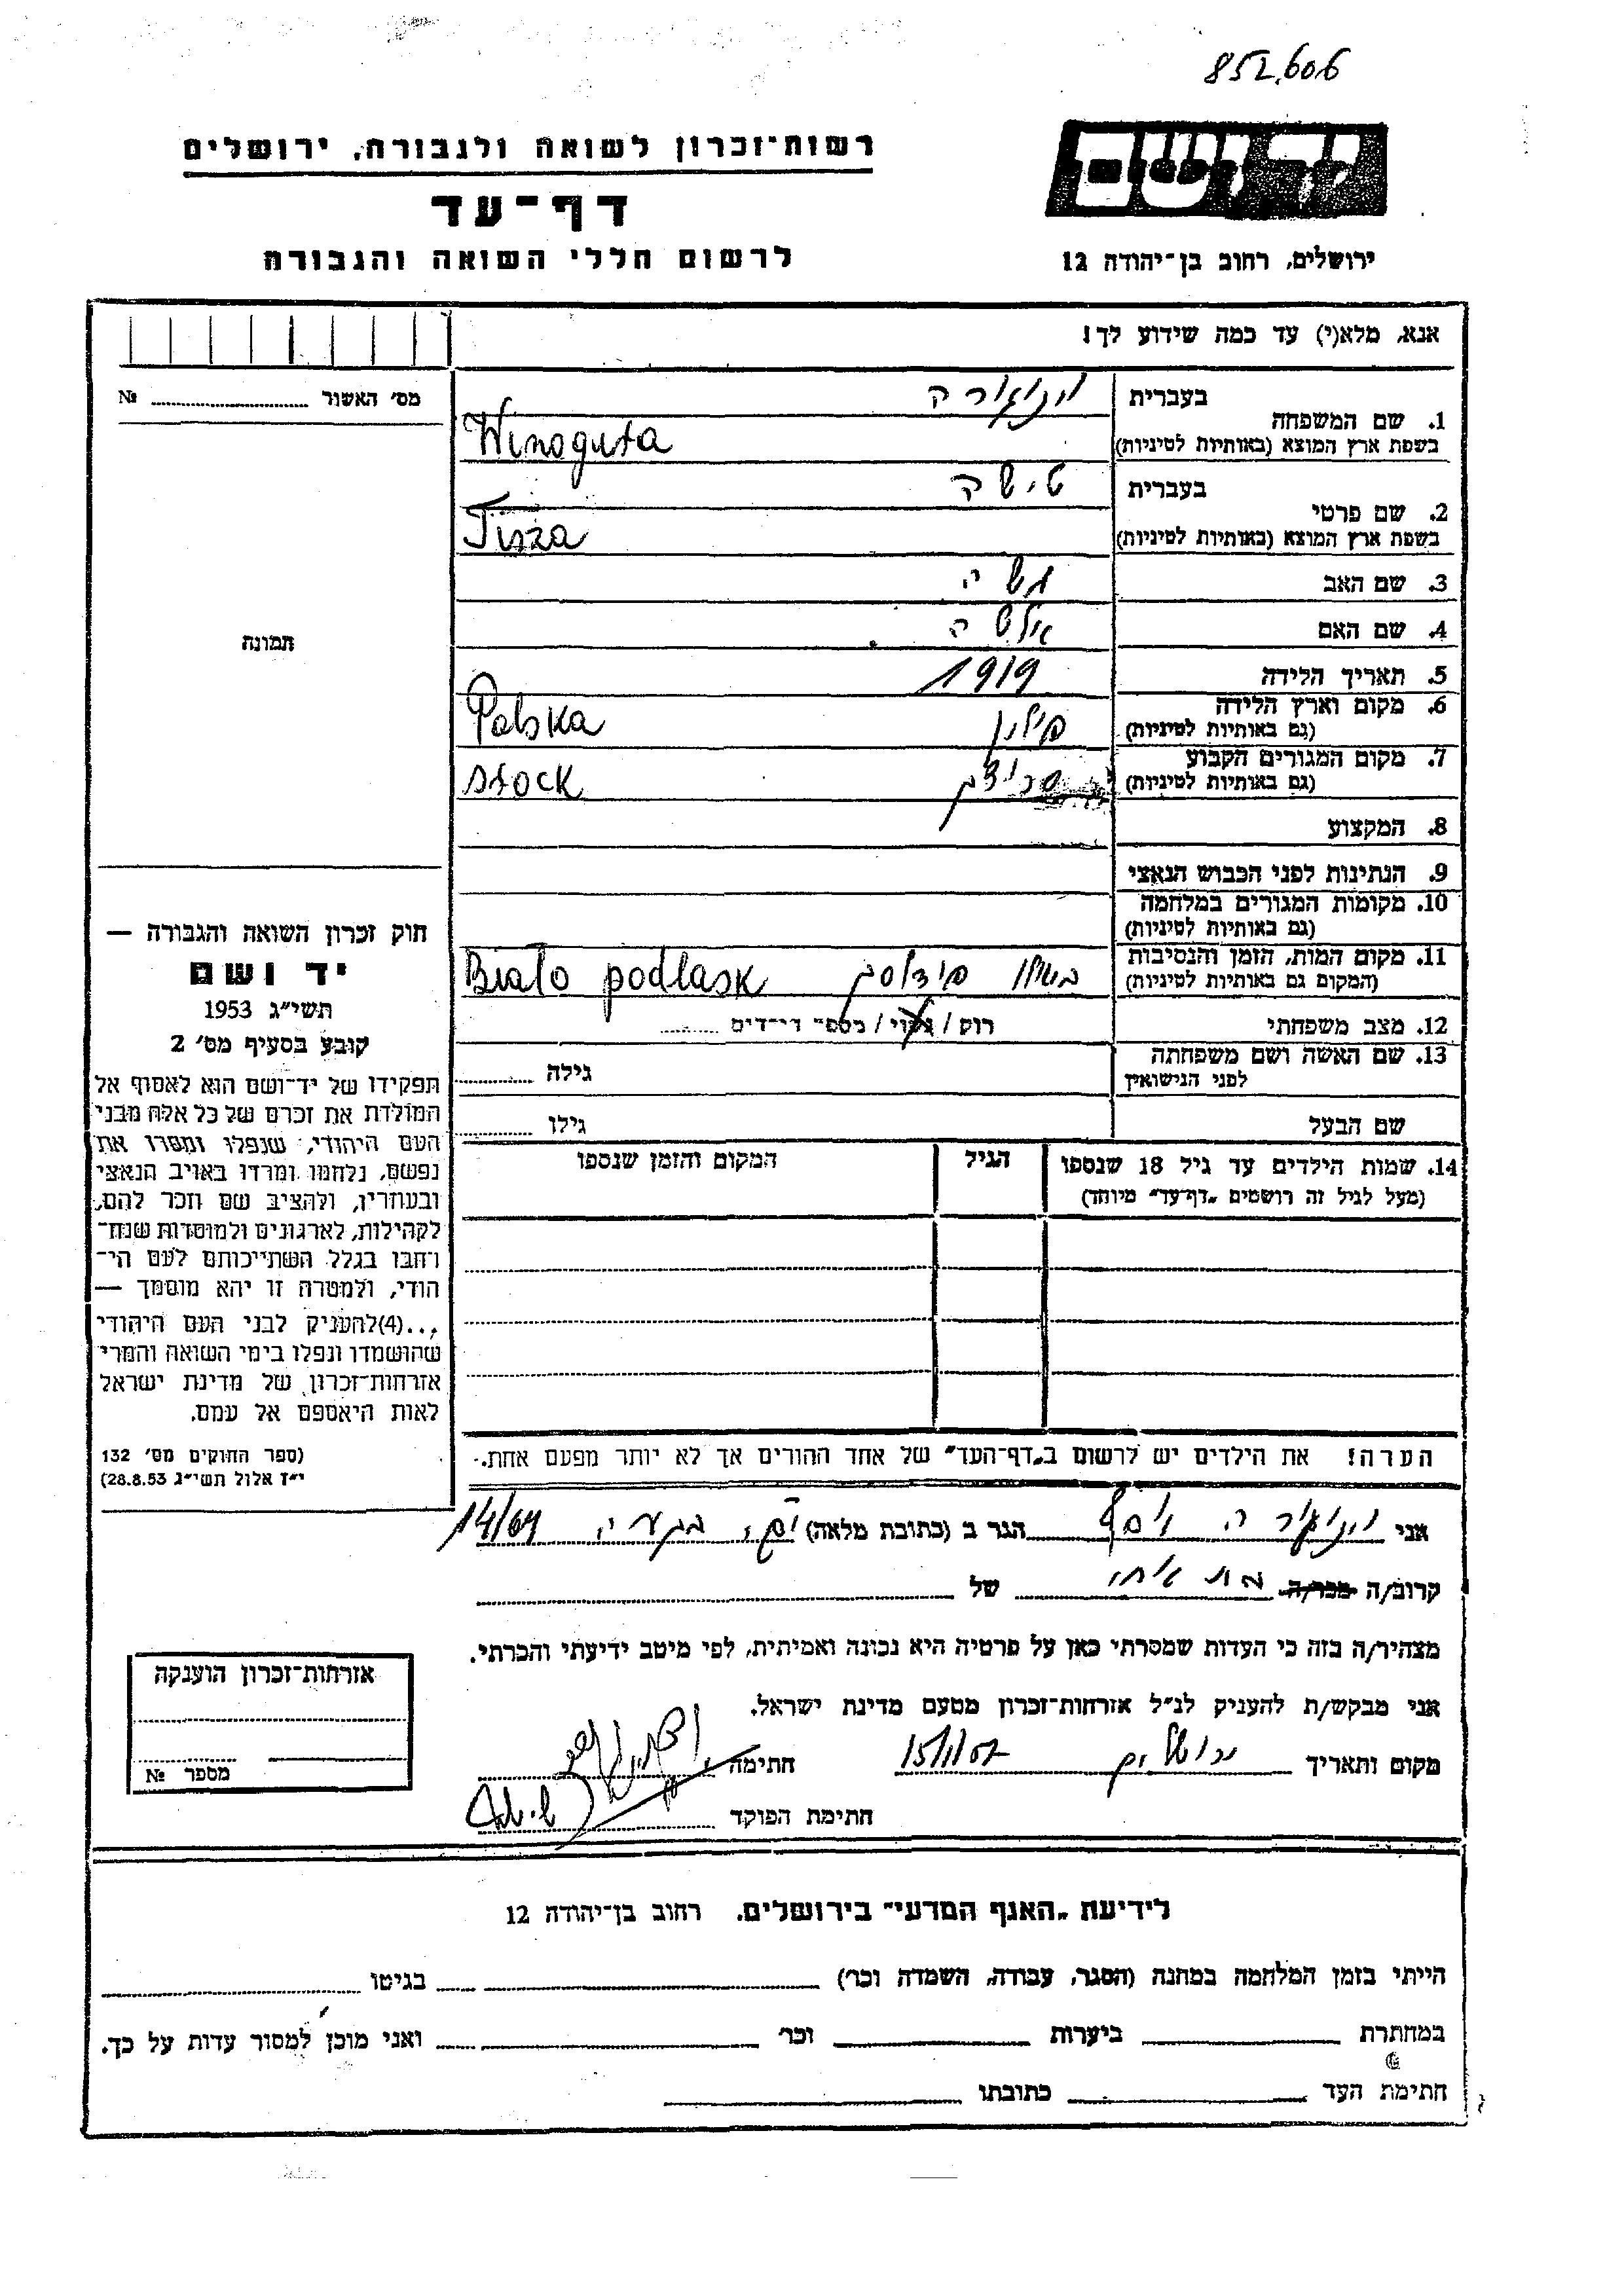 852.606
רשות־זכרון לשואה ולגבורה, ירושלים
יד ושם
דף־עד
לרשום חללי השואה והגבורה
ירושלים, רחוב בן־יהודה 12
אנא, מלא(י) עד כמה שידוע לך!
מס׳ האשור № 
1. שם המשפחה
בעברית
בשפת ארץ המוצא (באותיות לטיניות) Winoguta
2. שם פרטי
בעברית טישה
בשפת ארץ המוצא (באותיות לטיניות) Tisza
3. שם האב
4. שם האם
5. תאריך הלידה 1919
6. מקום וארץ הלידה פולין Polska
(גם באותיות לטיניות)
7. מקום המגורים הקבוע stock
(גם באותיות לטיניות)
8. המקצוע
9. הנתינות לפני הכבוש הנאצי
10. מקומות המגורים במלחמה
(גם באותיות לטיניות)
11. מקום המות, הזמן והנסיבות Biało podlask
(המקום גם באותיות לטיניות)
12. מצב משפחתי רווק / נשוי / מספר ילדים
13. שם האשה ושם משפחתה גילה
לפני הנישואין
שם הבעל גילו
14. שמות הילדים עד גיל 18 שנספו הגיל המקום והזמן שנספו
(מעל לגיל זה רושמים „דף־עד״ מיוחד)
הערה! את הילדים יש לרשום ב„דף־העד״ של אחד ההורים אך לא יותר מפעם אחת.
תמונה
חוק זכרון השואה והגבורה —
יד ושם
תשי״ג 1953
קובע בסעיף מס׳ 2
תפקידו של יד־ושם הוא לאסוף אל
המולדת את זכרם של כל אלה מבני
העם היהודי, שנפלו ומסרו את
נפשם, נלחמו ומרדו באויב הנאצי
ובעוזריו, ולהציב שם וזכר להם,
לקהילות, לארגונים ולמוסדות שנח־
רבו בגלל השתייכותם לעם הי־
הודי, ולמטרה זו יהא מוסמך —
...(4)להעניק לבני העם היהודי
שהושמדו ונפלו בימי השואה והמרי
אזרחות־זכרון של מדינת ישראל
לאות היאספם אל עמם.
(ספר החוקים מס׳ 132
י״ז אלול תשי״ג 28.8.53)
אני יוסף הגר ב (כתובת מלאה) 14/64
קרוב/ה מכר/ה של
מצהיר/ה בזה כי העדות שמסרתי כאן על פרטיה היא נכונה ואמיתית, לפי מיטב ידיעתי והכרתי.
אני מבקש/ת להעניק לנ״ל אזרחות־זכרון מטעם מדינת ישראל.
מקום ותאריך ירושלים 15/11/57 חתימה
חתימת הפוקד
אזרחות־זכרון הוענקה
מספר №
לידיעת „האגף המדעי״ בירושלים, רחוב בן־יהודה 12
הייתי בזמן המלחמה במחנה (הסגר, עבודה, השמדה וכו׳) בגיטו
במחתרת ביערות וכו׳ ואני מוכן למסור עדות על כך.
חתימת העד כתובתו